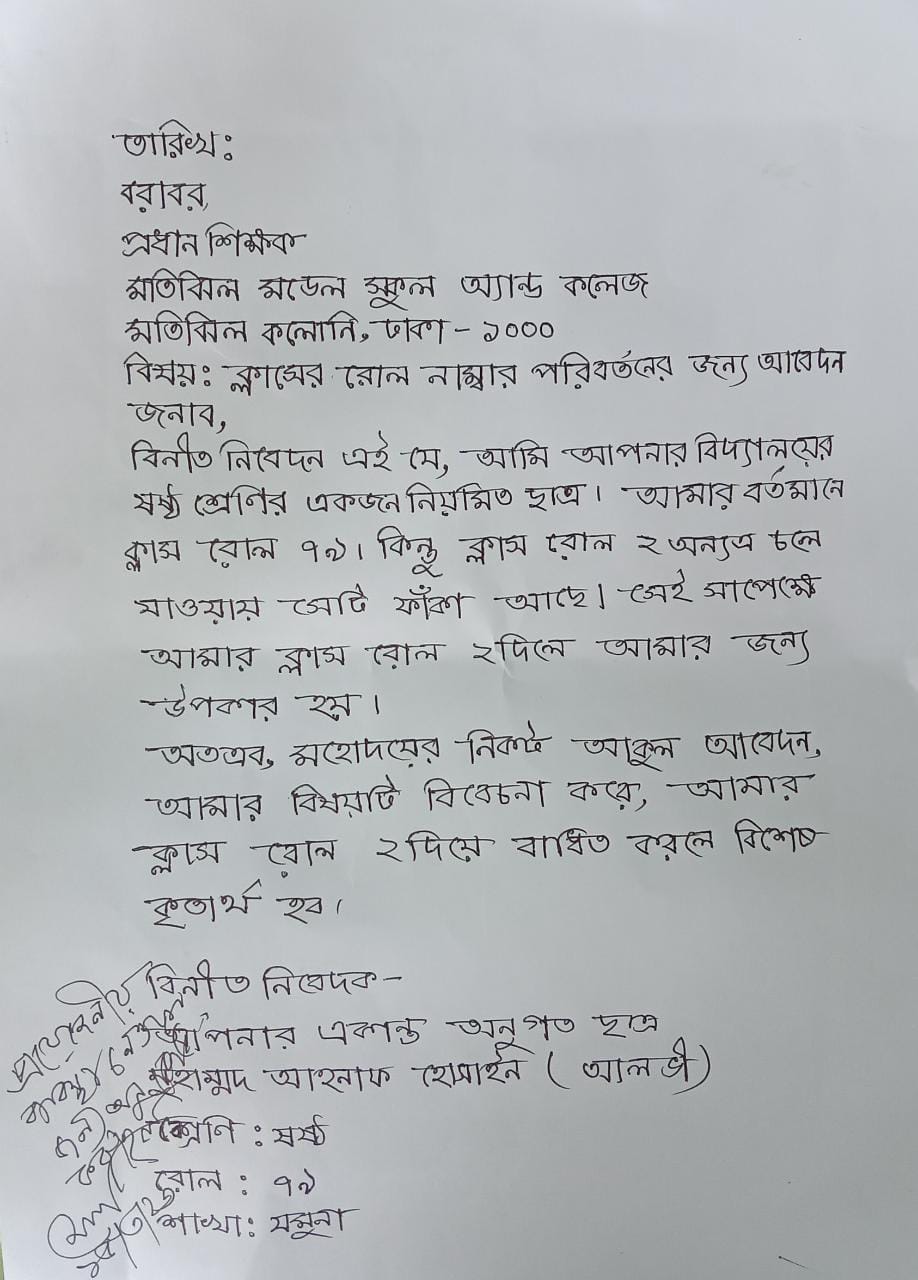 তারিখ:
বরাবর,
প্রধান শিক্ষক
মতিঝিল মডেল স্কুল অ্যান্ড কলেজ
মতিঝিল কলোনি, ঢাকা - ১০০০
বিষয়: ক্লাসের রোল নাম্বার পরিবর্তনের জন্য আবেদন
জনাব,
বিনীত নিবেদন এই যে, আমি আপনার বিদ্যালয়ের
ষষ্ঠ শ্রেণির একজন নিয়মিত ছাত্র। আমার বর্তমানে
ক্লাস রোল ৭৯। কিন্তু ক্লাস রোল ২ অন্যত্র চলে
যাওয়ায় সেটি ফাঁকা আছে। সেই সাপেক্ষে
আমার ক্লাস রোল ২ দিলে আমার জন্য
উপকার হয়।
অতএব, মহোদয়ের নিকট আকুল আবেদন,
আমার বিষয়টি বিবেচনা করে, আমার
ক্লাস রোল ২ দিয়ে বাধিত করলে বিশেষ
কৃতার্থ হব।
বিনীত নিবেদক-
আপনার একান্ত অনুগত ছাত্র
মুহাম্মদ আহনাফ হোসাইন (আলভী)
শ্রেণি : ষষ্ঠ
রোল : ৭৯
শাখা: যমুনা
প্রয়োজনীয়
ব্যবস্থা